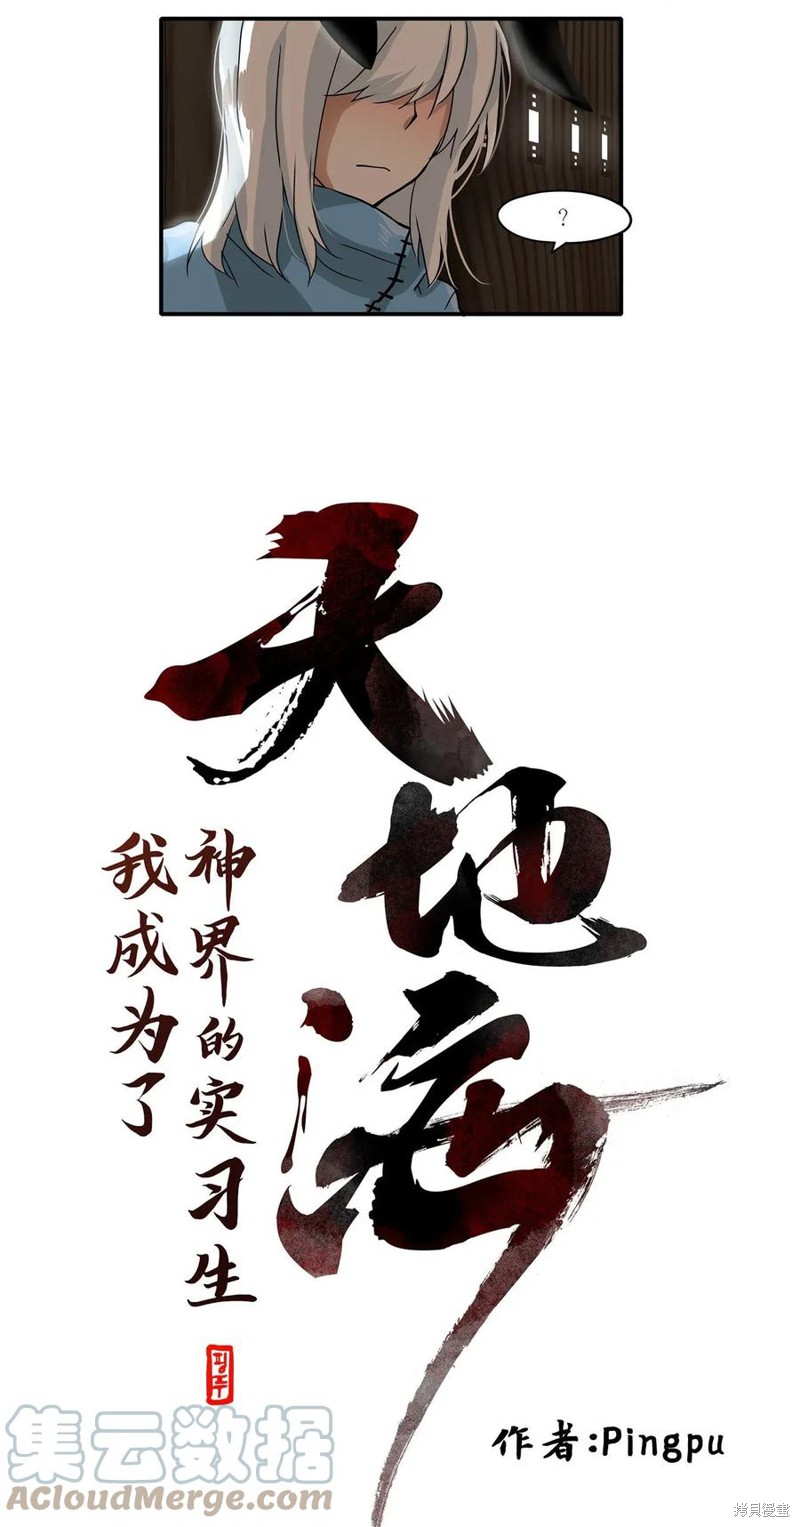 ?
天地海
我成为了
神界的实习生
핑푸
作者:Pingpu
集云数据
ACloudMerge.com
拷貝漫畫